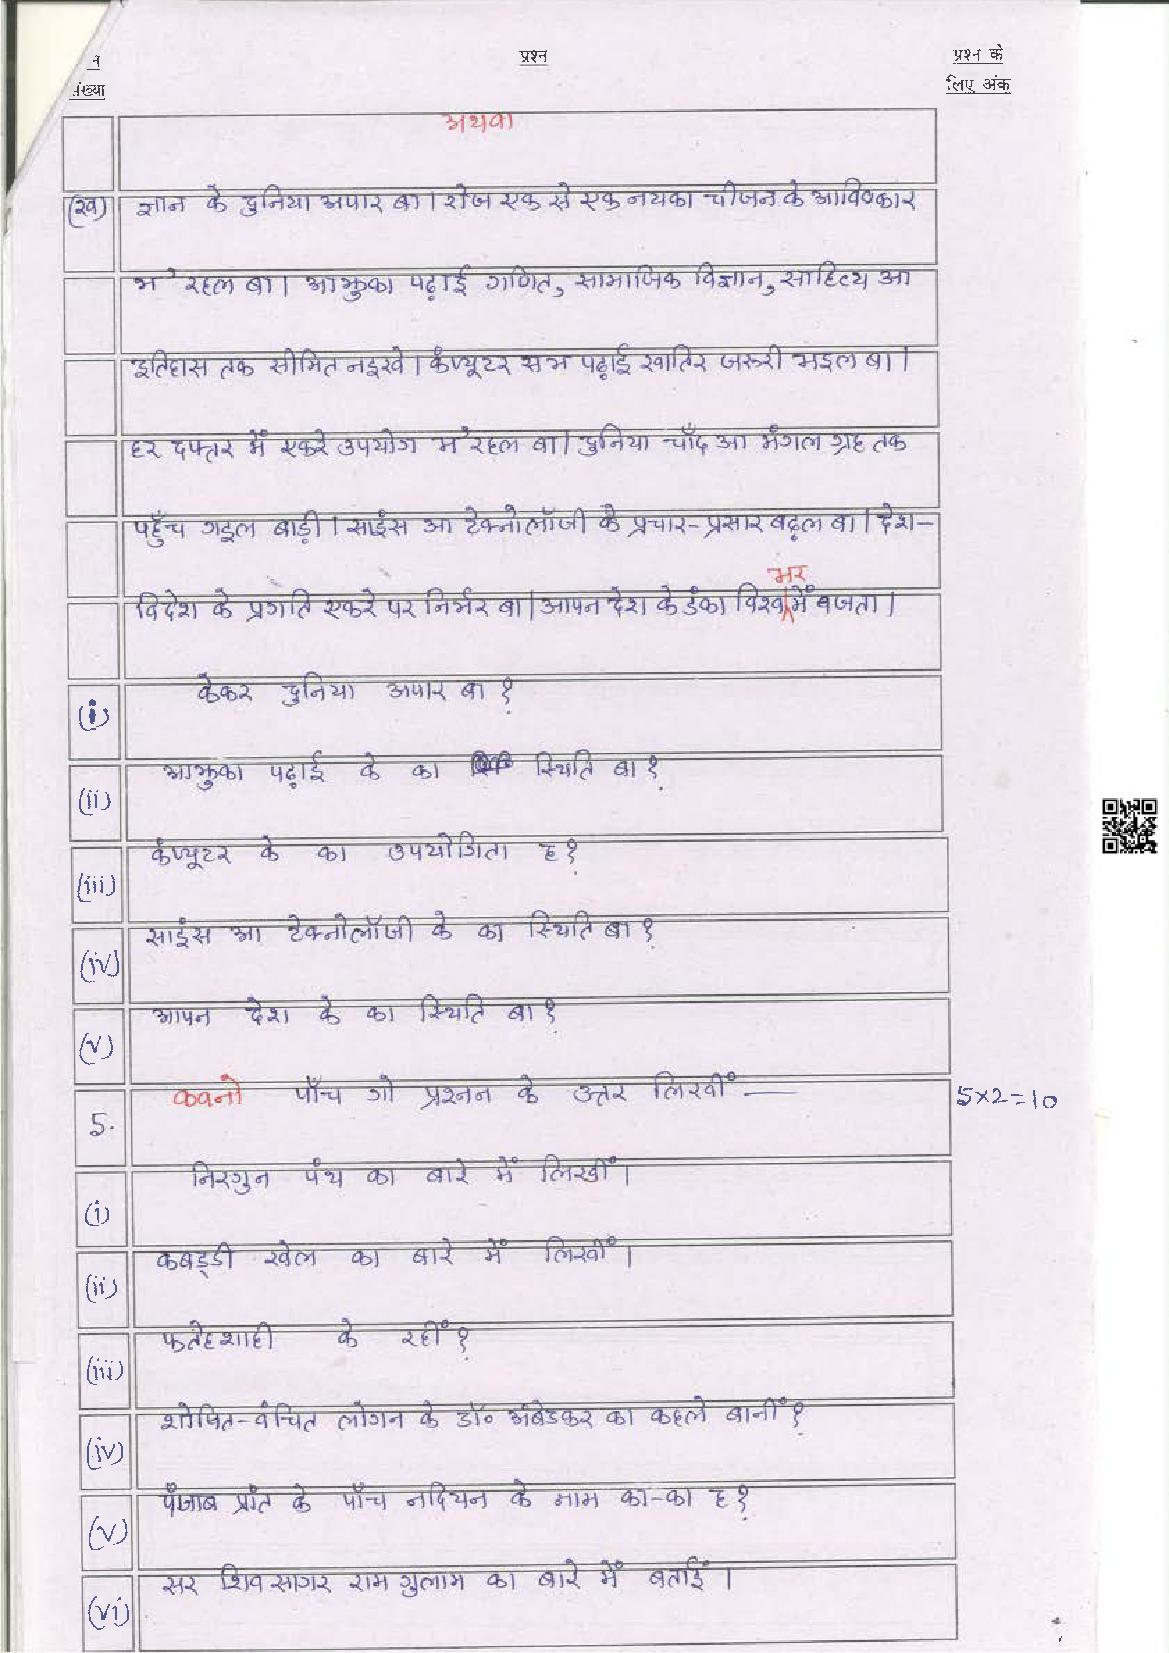 न
संख्या
प्रश्न
प्रश्न के
लिए अंक
अथवा
(ख) ज्ञान के दुनिया अपार बा। रोज एक से एक नयका चीजन के आविष्कार
भ' रहल बा। आझुका पढ़ाई गणित, सामाजिक विज्ञान, साहित्य आ
इतिहास तक सीमित नइखे। कंप्यूटर सभ पढ़ाई खातिर जरूरी भइल बा।
हर दफ्तर में एकरे उपयोग भ' रहल बा। दुनिया चाँद आ मंगल ग्रह तक
पहुँच गइल बाड़ी। साइंस आ टेक्नोलॉजी के प्रचार-प्रसार बढ़ल बा। देश-
विदेश के प्रगति एकरे पर निर्भर बा। आपन देश के डंका विश्व भर में बजता।
(i) केकर दुनिया अपार बा?
(ii) आझुका पढ़ाई के का स्थिति बा?
(iii) कंप्यूटर के का उपयोगिता ह?
(iv) साइंस आ टेक्नोलॉजी के का स्थिति बा?
(v) आपन देश के का स्थिति बा?
5. कवनो पाँच गो प्रश्नन के उत्तर लिखीं — 5×2=10
(i) निरगुन पंथ का बारे में लिखीं।
(ii) कबड्डी खेल का बारे में लिखीं।
(iii) फतेहशाही के रहीं?
(iv) शोषित-वंचित लोगन के डॉ० अंबेडकर का कहले बानीं?
(v) पंजाब प्रांत के पाँच नदियन के नाम का-का ह?
(vi) सर शिवसागर राम गुलाम का बारे में बताईं।